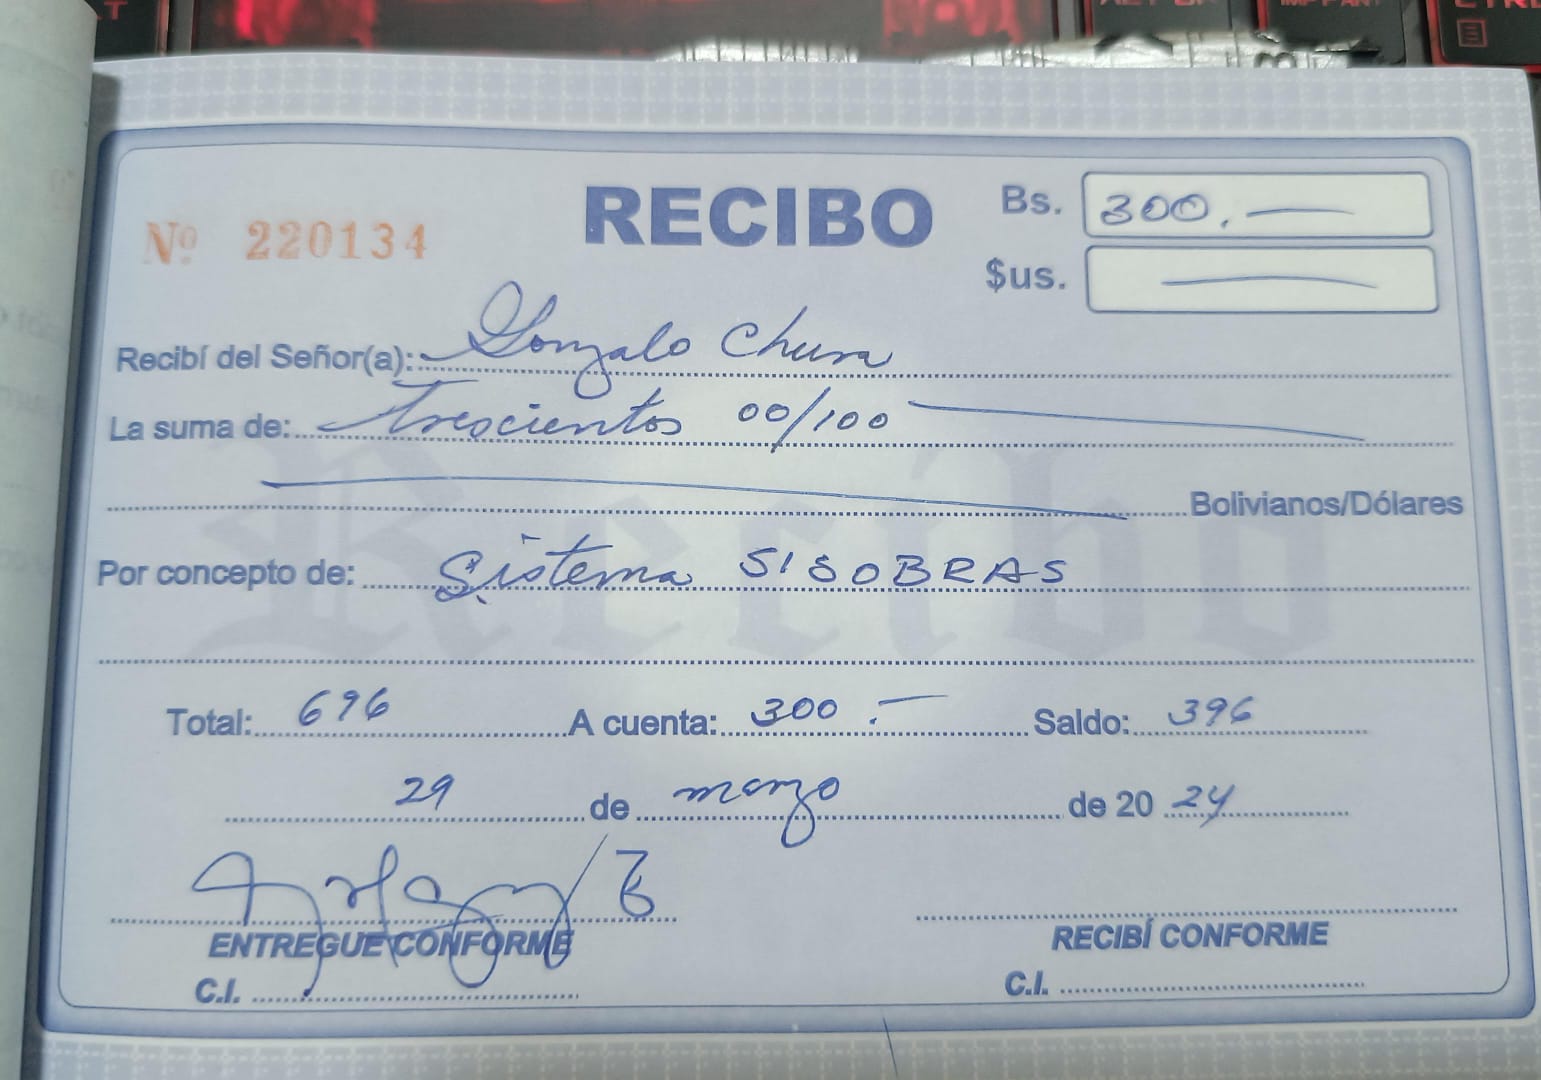 Nº 220134
RECIBO
Bs. 300.
$us.
Recibí del Señor(a): Gonzalo Chura
La suma de: Trescientos 00/100
Bolivianos/Dólares
Por concepto de: Sistema SISOBRAS
Total: 696 A cuenta: 300.- Saldo: 396
29 de marzo de 20 24
ENTREGUE CONFORME
RECIBÍ CONFORME
C.I.
C.I.